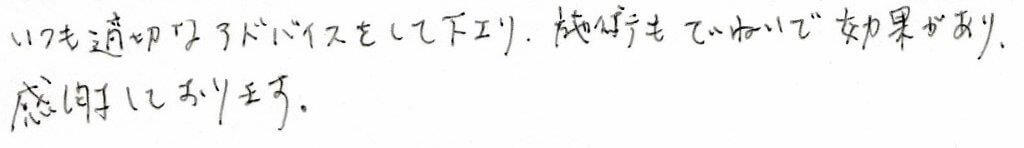 いつも適切なアドバイスをして下さり、施術もていねいで効果があり、
感謝しております。